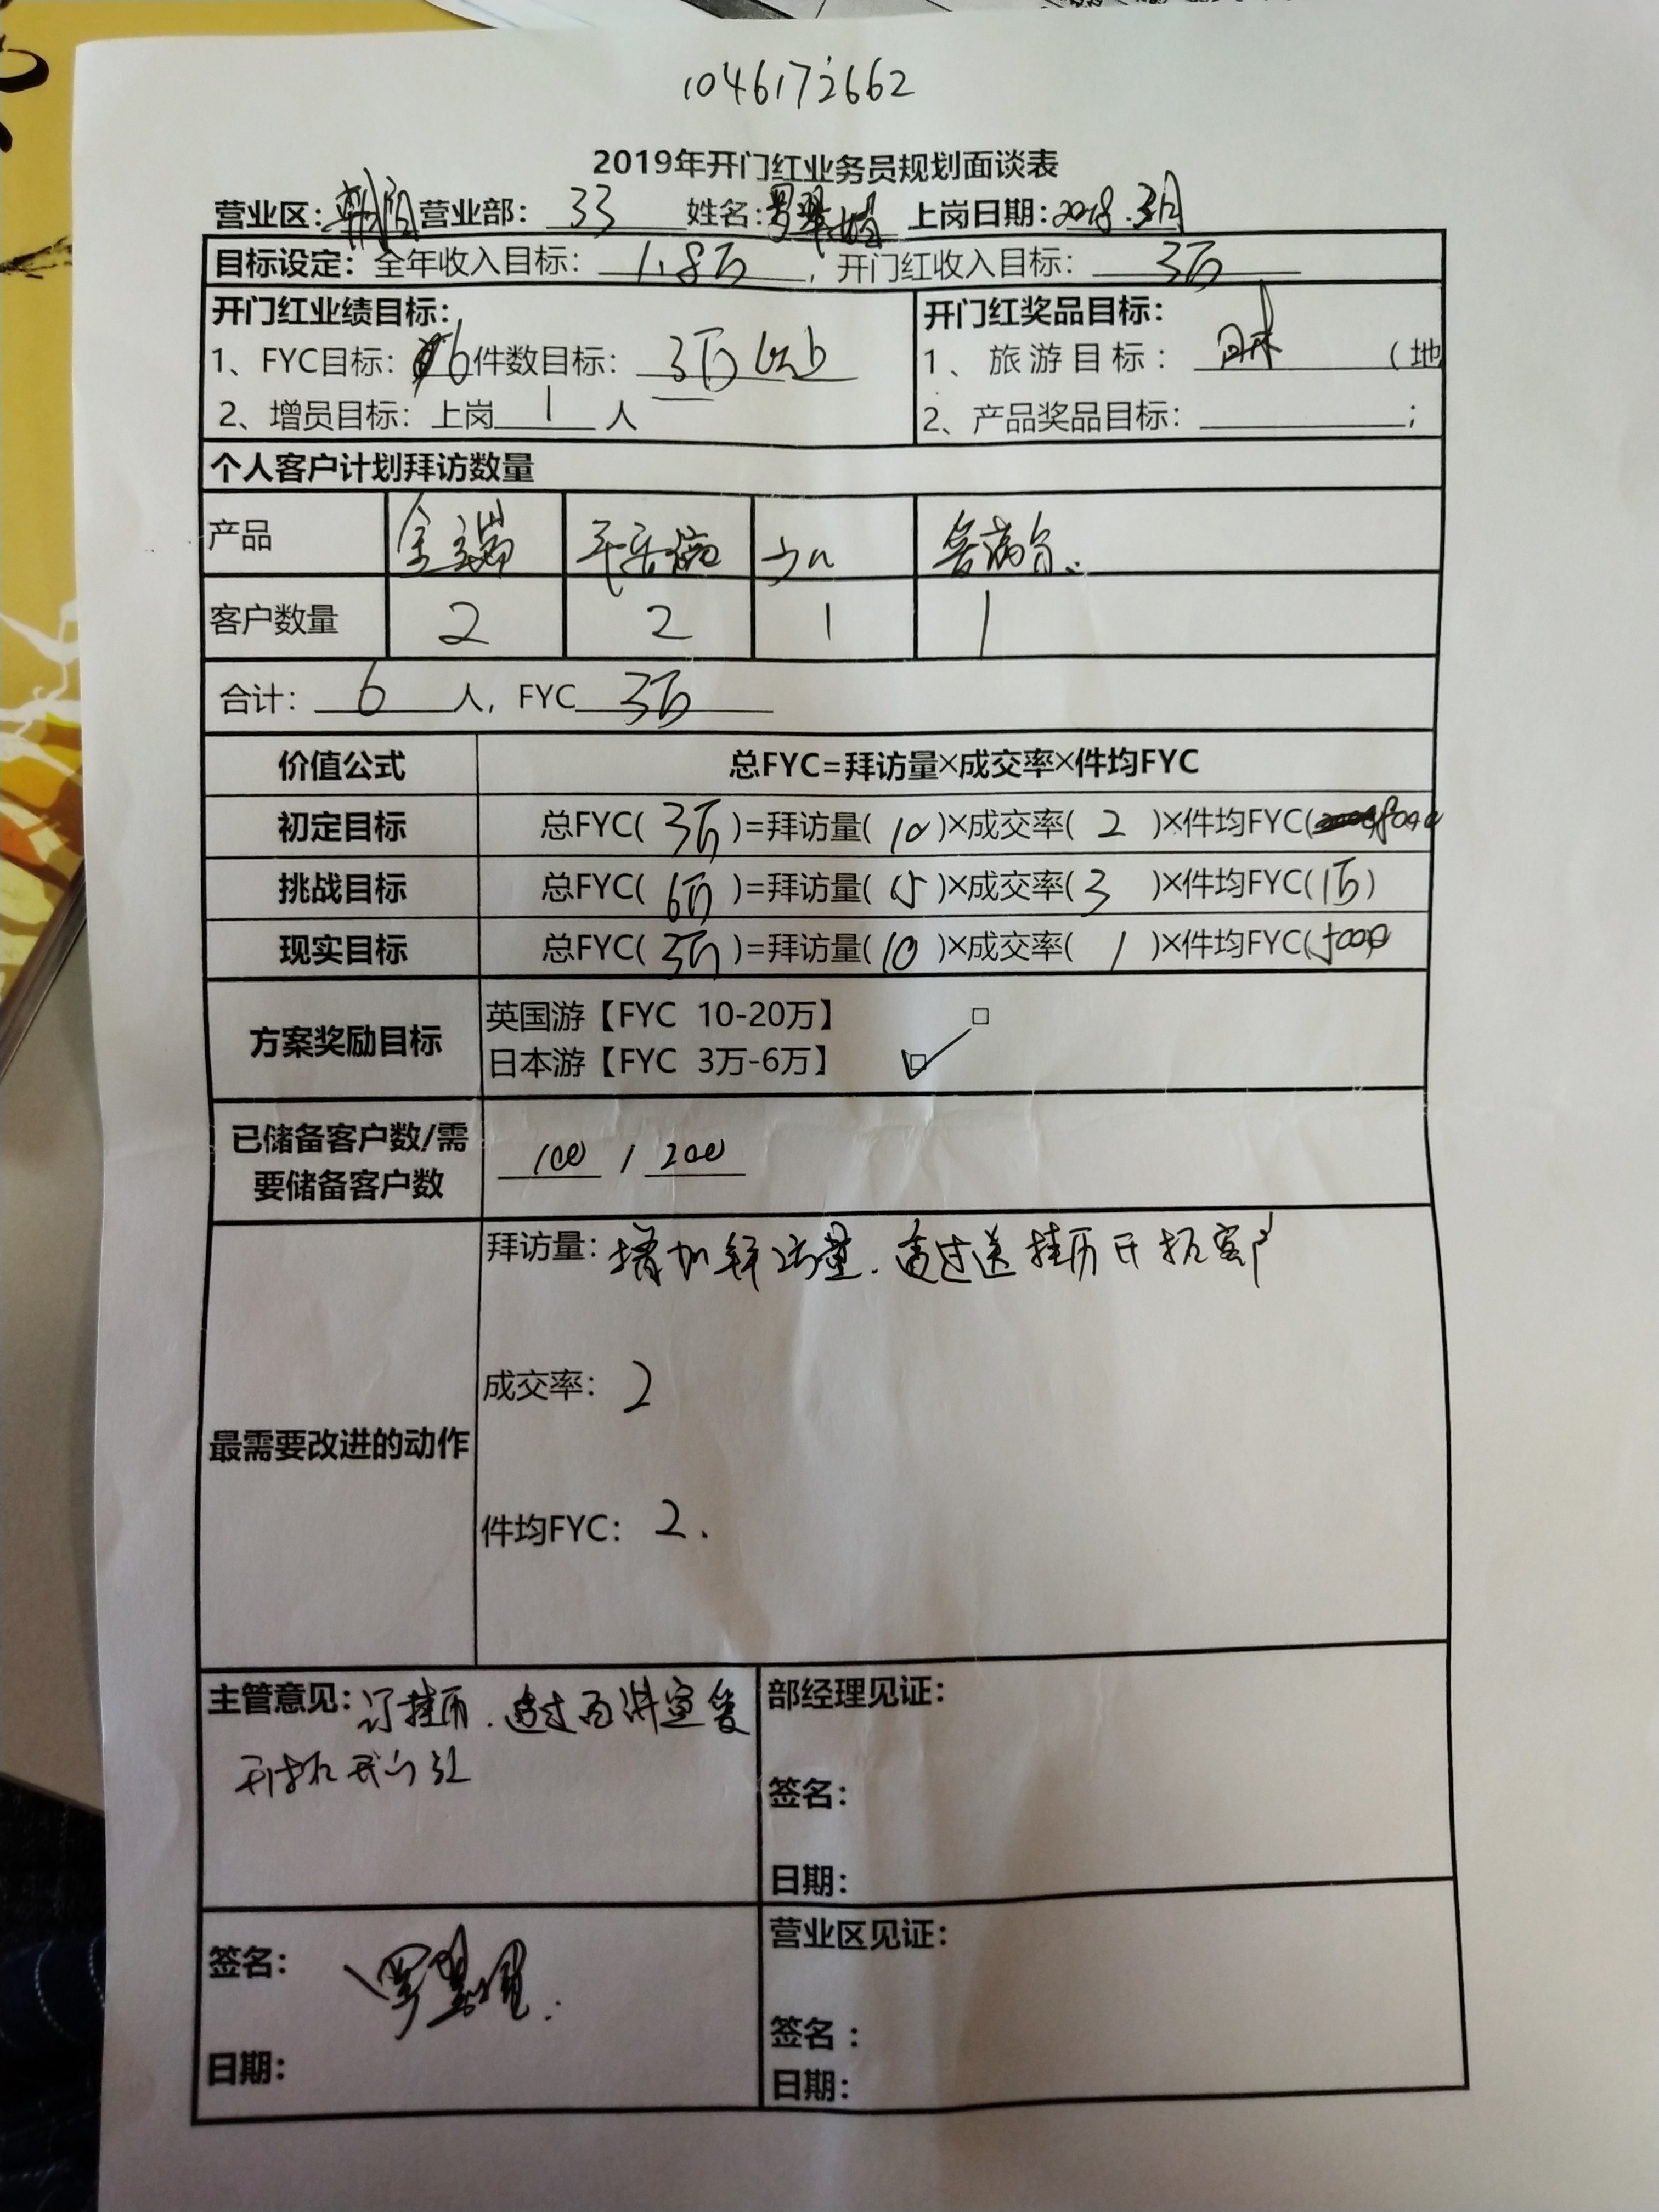 1046172662
2019年开门红业务员规划面谈表
营业区: 朝阳 营业部: 33 姓名: 罗翠 上岗日期: 2018.3月
目标设定: 全年收入目标: 1.8万, 开门红收入目标: 3万
开门红业绩目标: 开门红奖品目标:
1、FYC目标: 6 件数目标: 3万 1、旅游目标: 日本 (地
2、增员目标: 上岗 1 人 2、产品奖品目标: ;
个人客户计划拜访数量
产品 金瑞 平安福
客户数量 2 2 1 1
合计: 6 人, FYC 3万
价值公式 总FYC=拜访量×成交率×件均FYC
初定目标 总FYC( 3万 )=拜访量( 10 )×成交率( 2 )×件均FYC(
挑战目标 总FYC( 6万 )=拜访量( 15 )×成交率( 3 )×件均FYC( 1万 )
现实目标 总FYC( 3万 )=拜访量( 10 )×成交率( 1 )×件均FYC( 5000
方案奖励目标 英国游【FYC 10-20万】 □
日本游【FYC 3万-6万】 ☑
已储备客户数/需
要储备客户数 100 / 200
拜访量: 增加拜访量. 通过送挂历开拓客户
成交率: 2
最需要改进的动作
件均FYC: 2.
主管意见: 订挂历. 通过 部经理见证:
开拓开门红
签名:
日期:
营业区见证:
签名:
签名:
日期:
日期: